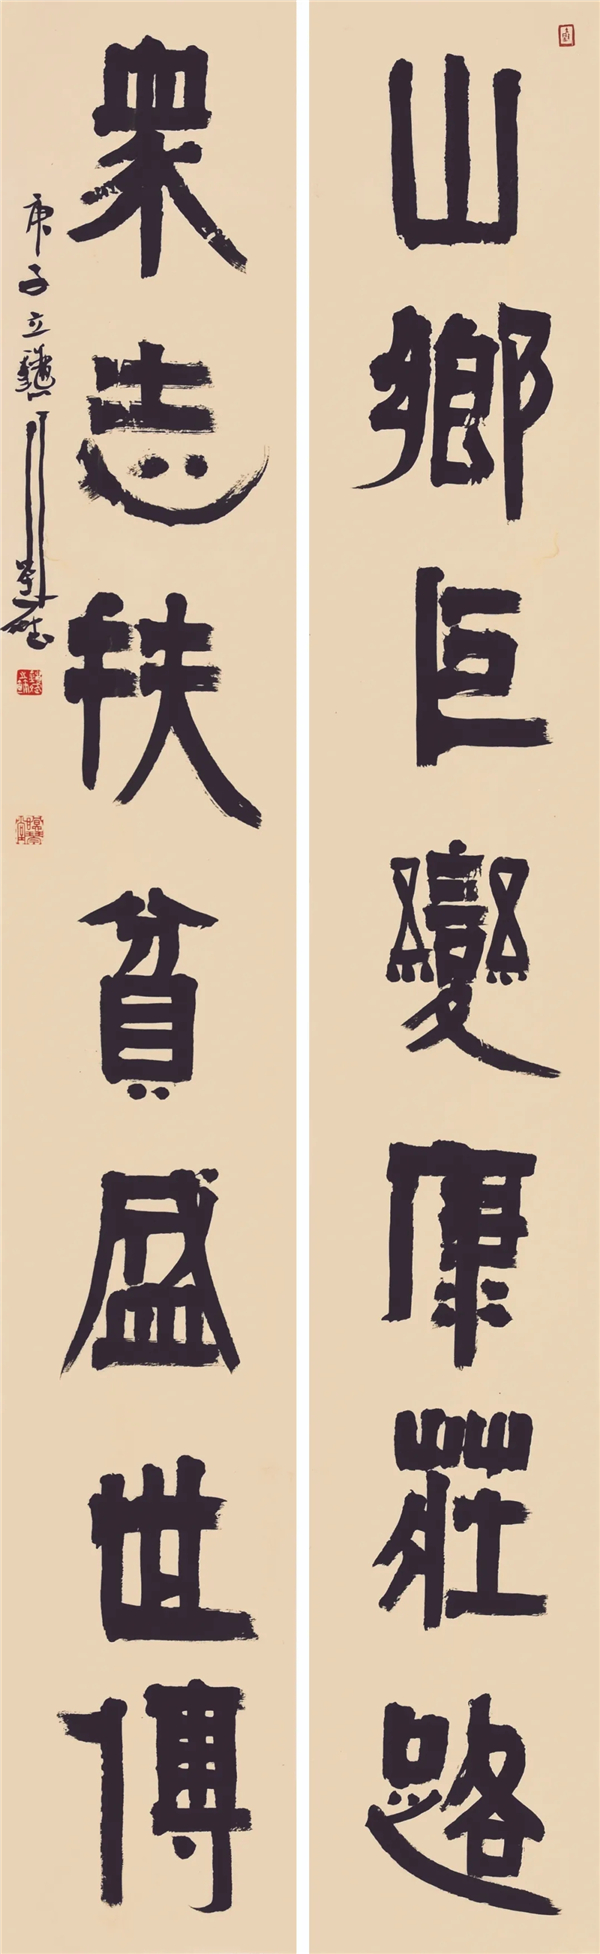 山鄉巨變康莊路
眾志扶貧盛世傳
庚子立